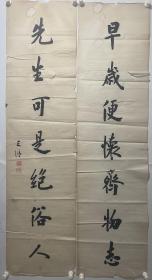 早歲便懷齊物志
先生可是絕俗人